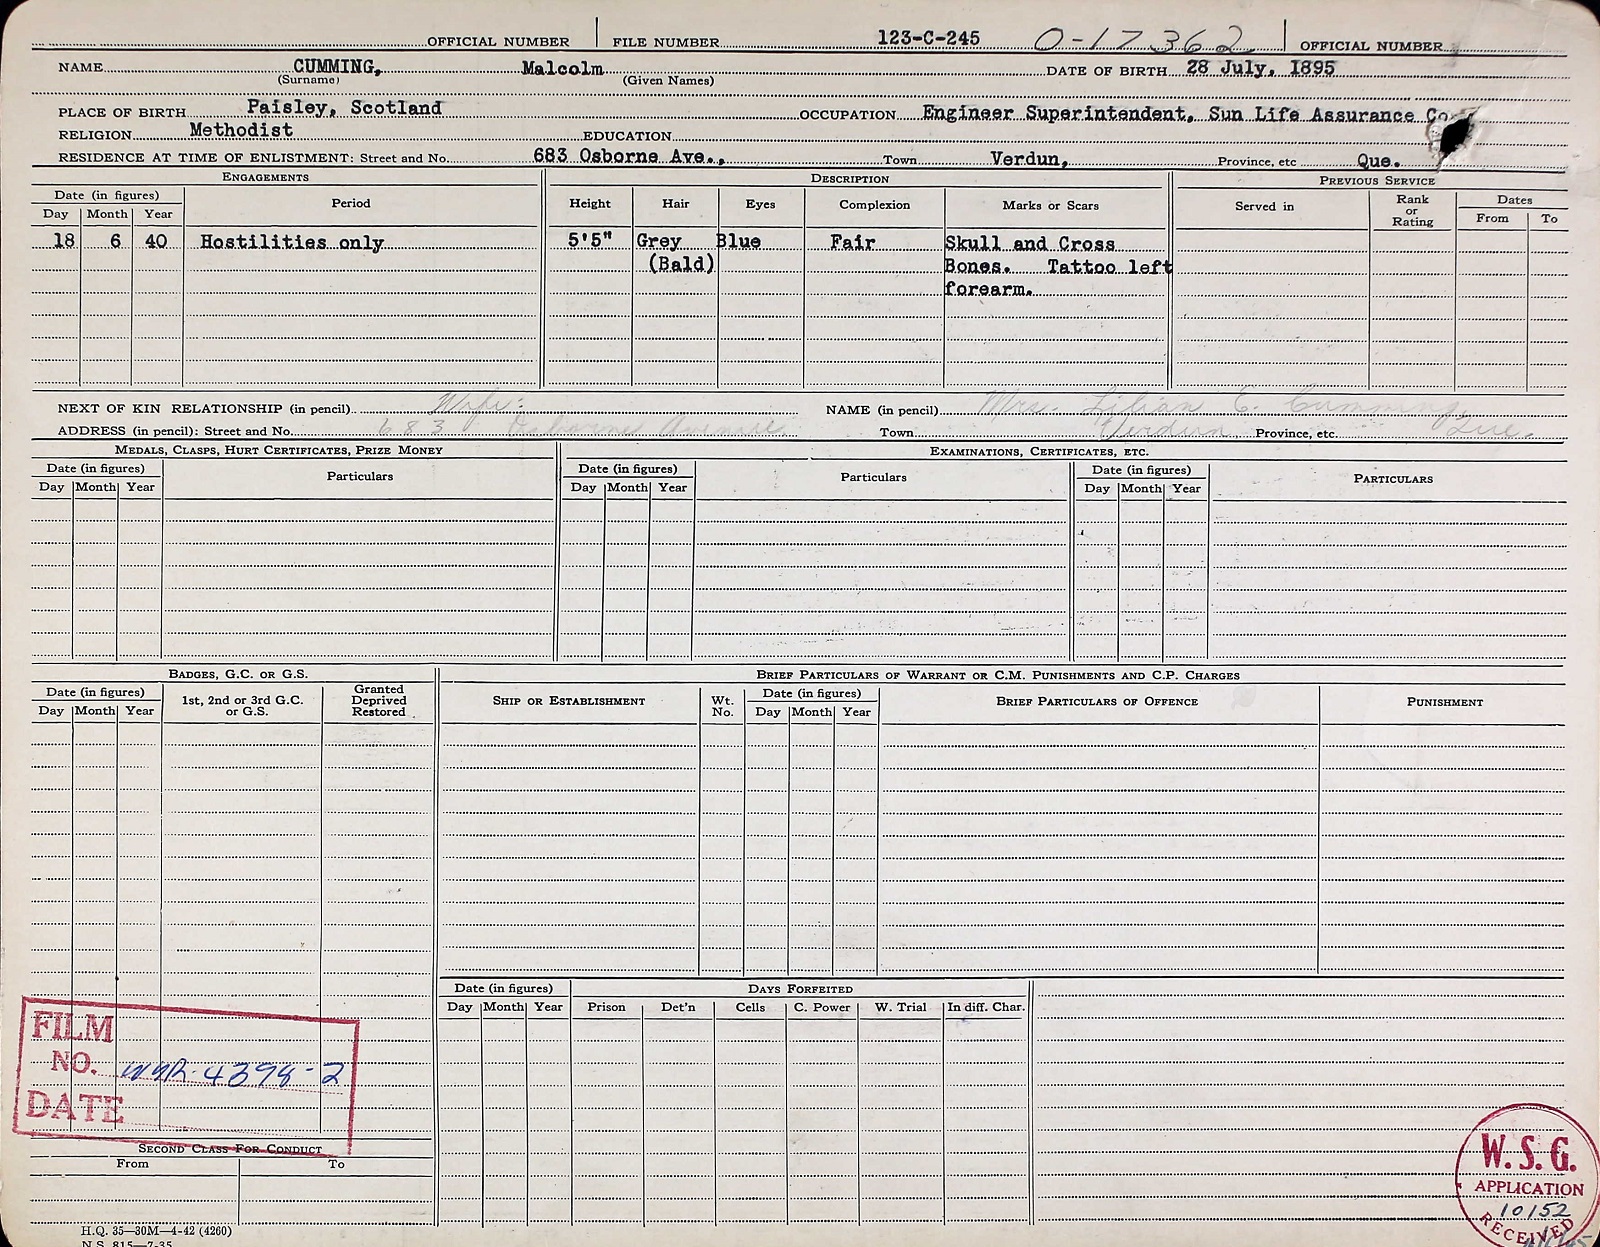 OFFICIAL NUMBER FILE NUMBER 123-C-245 O-17362 OFFICIAL NUMBER
NAME CUMMING, Malcolm DATE OF BIRTH 28 July, 1895
(Surname) (Given Names)
PLACE OF BIRTH Paisley, Scotland OCCUPATION Engineer Superintendent, Sun Life Assurance Co
RELIGION Methodist EDUCATION
RESIDENCE AT TIME OF ENLISTMENT: Street and No. 683 Osborne Ave., Town Verdun, Province, etc Que.
ENGAGEMENTS DESCRIPTION PREVIOUS SERVICE
Date (in figures) Period Height Hair Eyes Complexion Marks or Scars Served in Rank or Rating Dates
Day Month Year From To
18 6 40 Hostilities only 5'5" Grey Blue Fair Skull and Cross
(Bald) Bones. Tattoo left
forearm.
NEXT OF KIN RELATIONSHIP (in pencil) Wife: NAME (in pencil) Mrs. Lilian E. Cumming,
ADDRESS (in pencil): Street and No. 683 Osborne Avenue, Town Verdun, Province, etc. Que.
MEDALS, CLASPS, HURT CERTIFICATES, PRIZE MONEY EXAMINATIONS, CERTIFICATES, ETC.
Date (in figures) Particulars Date (in figures) Particulars Date (in figures) PARTICULARS
Day Month Year Day Month Year Day Month Year
BADGES, G.C. OR G.S. BRIEF PARTICULARS OF WARRANT OR C.M. PUNISHMENTS AND C.P. CHARGES
Date (in figures) 1st, 2nd or 3rd G.C. or G.S. Granted Deprived Restored SHIP OR ESTABLISHMENT Wt. No. Date (in figures) BRIEF PARTICULARS OF OFFENCE PUNISHMENT
Day Month Year Day Month Year
Date (in figures) DAYS FORFEITED
Day Month Year Prison Det'n Cells C. Power W. Trial In diff. Char.
FILM
NO. WSR-4398-2
DATE
SECOND CLASS FOR CONDUCT
From To
W.S.G.
APPLICATION
10152
RECEIVED
H.Q. 35—30M—4-42 (4260)
N.S. 815—7-35